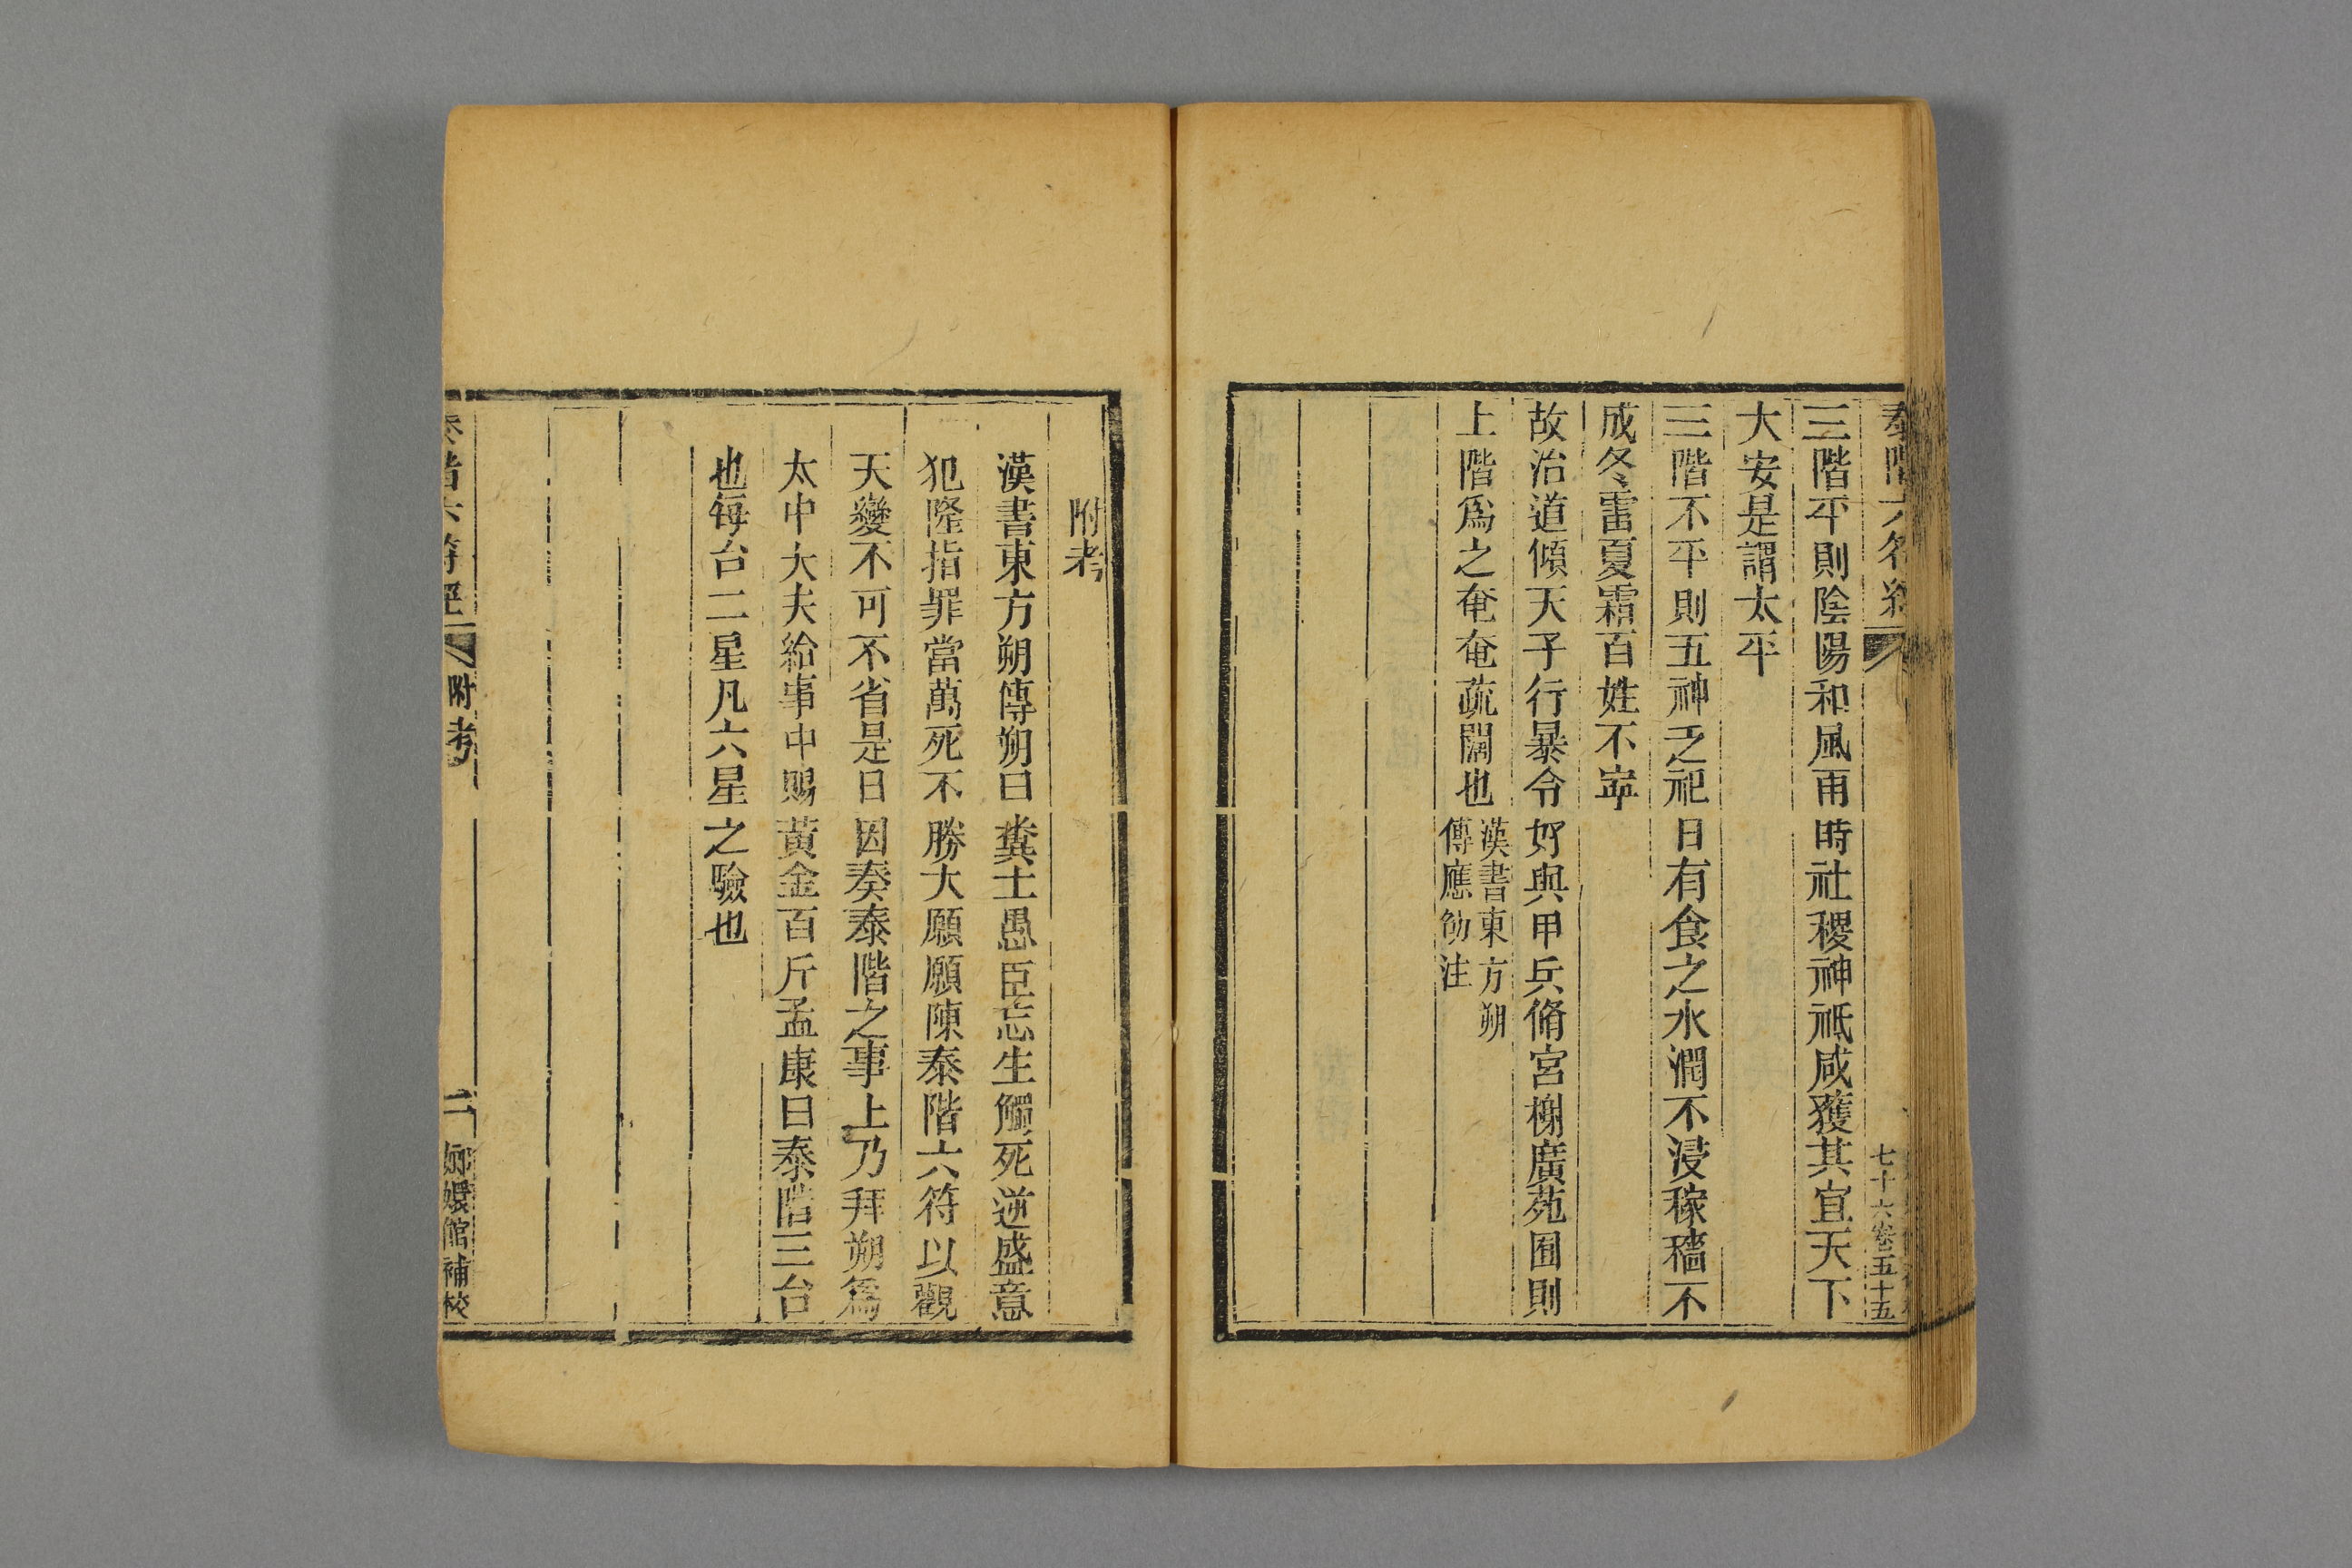 七十六卷五十五
三階平則陰陽和風雨時社稷神祇咸獲其宜天下
大安是謂太平
三階不平則五神乏祀日有食之水潤不浸稼穡不
成冬雷夏霜百姓不寍
故治道傾天子行暴令好與甲兵脩宮榭廣苑囿則
上階爲之奄奄疏闊也漢書東方朔
傳應劭注
附考
漢書東方朔傳朔曰糞土愚臣忘生觸死逆盛意
犯隆指罪當萬死不勝大願願陳泰階六符以觀
天變不可不省是日因奏泰階之事上乃拜朔爲
太中大夫給事中賜黃金百斤孟康曰泰階三台
也每台二星凡六星之驗也
泰階六符經 附考 二 嫏嬛館補校